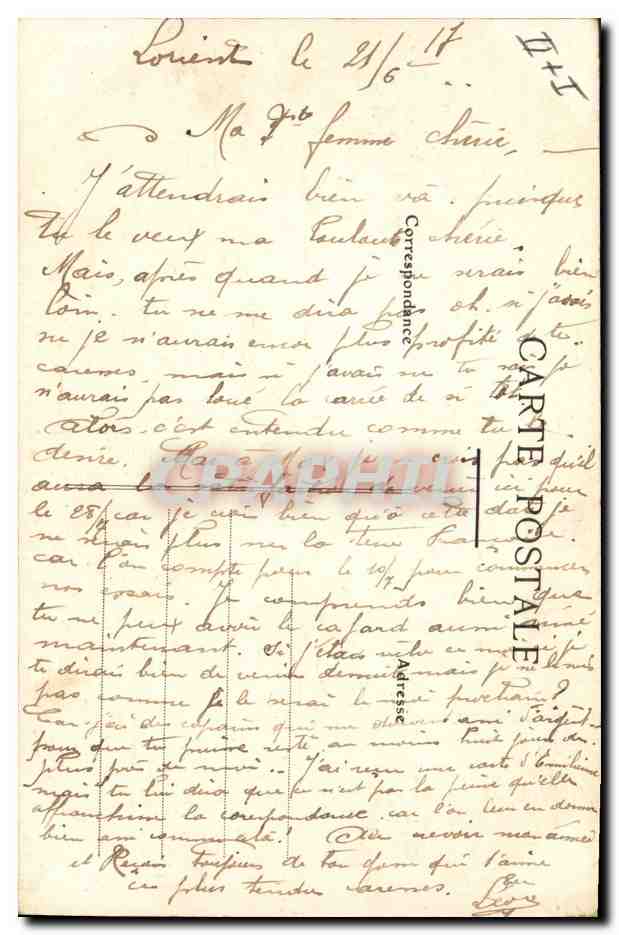 II + I
Lorient le 21/6 17
Ma Ptte femme chérie,
J'attendrais bien va. puisque
tu le veux ma Louloute chérie.
Mais, après quand je serais bien
loin. tu ne me dira pas oh. si j'avais
su je n'aurais encor plus profité de tes
caresses, mais si j'avais su tu vas je
n'aurais pas loué la carrée de si tôt
alors c'est entendu comme tu le
désire. Mais à
le 28/7 car je crois bien qu'à cette date je
ne serais plus sur la terre Française.
car l'on compte pour le 10/7 pour commencer
nos essais. Je comprends bien que
tu ne peux avoir le cafard
maintenant. Si j'étais
te dirais bien de venir demain mais je ne le suis
pas comme je le serai le mois prochain?
Car j'ai des copains qui me doivent de l'argent
pour que tu puisse resté au moins huit jours de
plus près de moi.. J'ai reçu une carte d'Emilienne
mais tu lui dira que ce n'est pas la peine qu'elle
affranchisse la corespondance car l'on
bien Au revoir mon aimée
et Reçois toujours de ton qui t'aime
ces plus tendres caresses.
Correspondance
CARTE POSTALE
Adresse
CPAPHIL